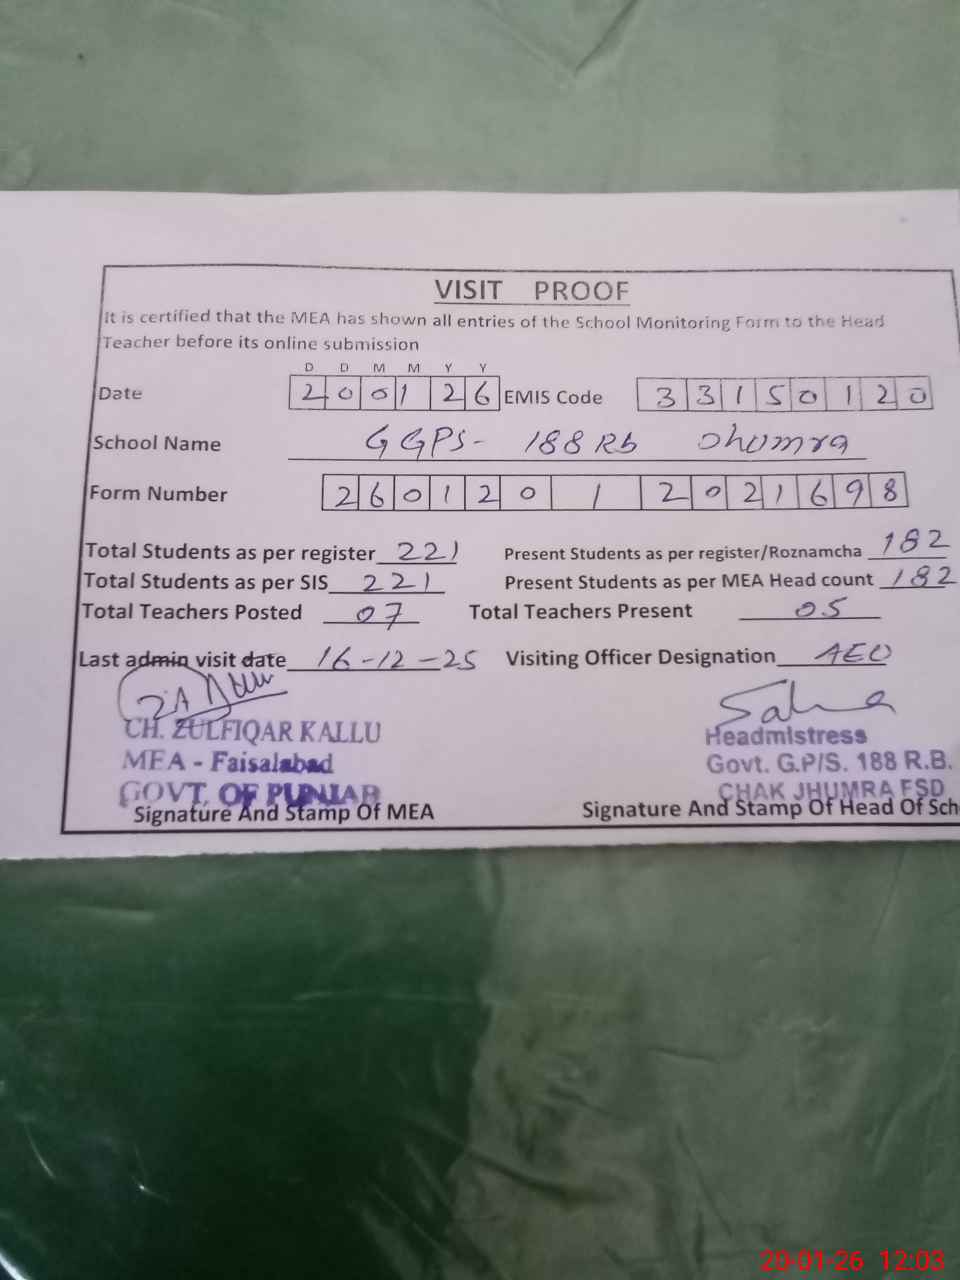 VISIT PROOF
It is certified that the MEA has shown all entries of the School Monitoring Form to the Head
Teacher before its online submission
D D M M Y Y
Date 2 0 0 1 2 6 EMIS Code 3 3 1 5 0 1 2 0
School Name GGPS- 188 Rb Dhumra
Form Number 2 6 0 1 2 0 1 2 0 2 1 6 9 8
Total Students as per register 221 Present Students as per register/Roznamcha 182
Total Students as per SIS 221 Present Students as per MEA Head count 182
Total Teachers Posted 07 Total Teachers Present 05
Last admin visit date 16-12-25 Visiting Officer Designation AEO
CH. ZULFIQAR KALLU
MEA - Faisalabad
GOVT. OF PUNJAB
Signature And Stamp Of MEA
Headmistress
Govt. G.P/S. 188 R.B.
CHAK JHUMRA FSD
Signature And Stamp Of Head Of Sch
20-01-26 12:03